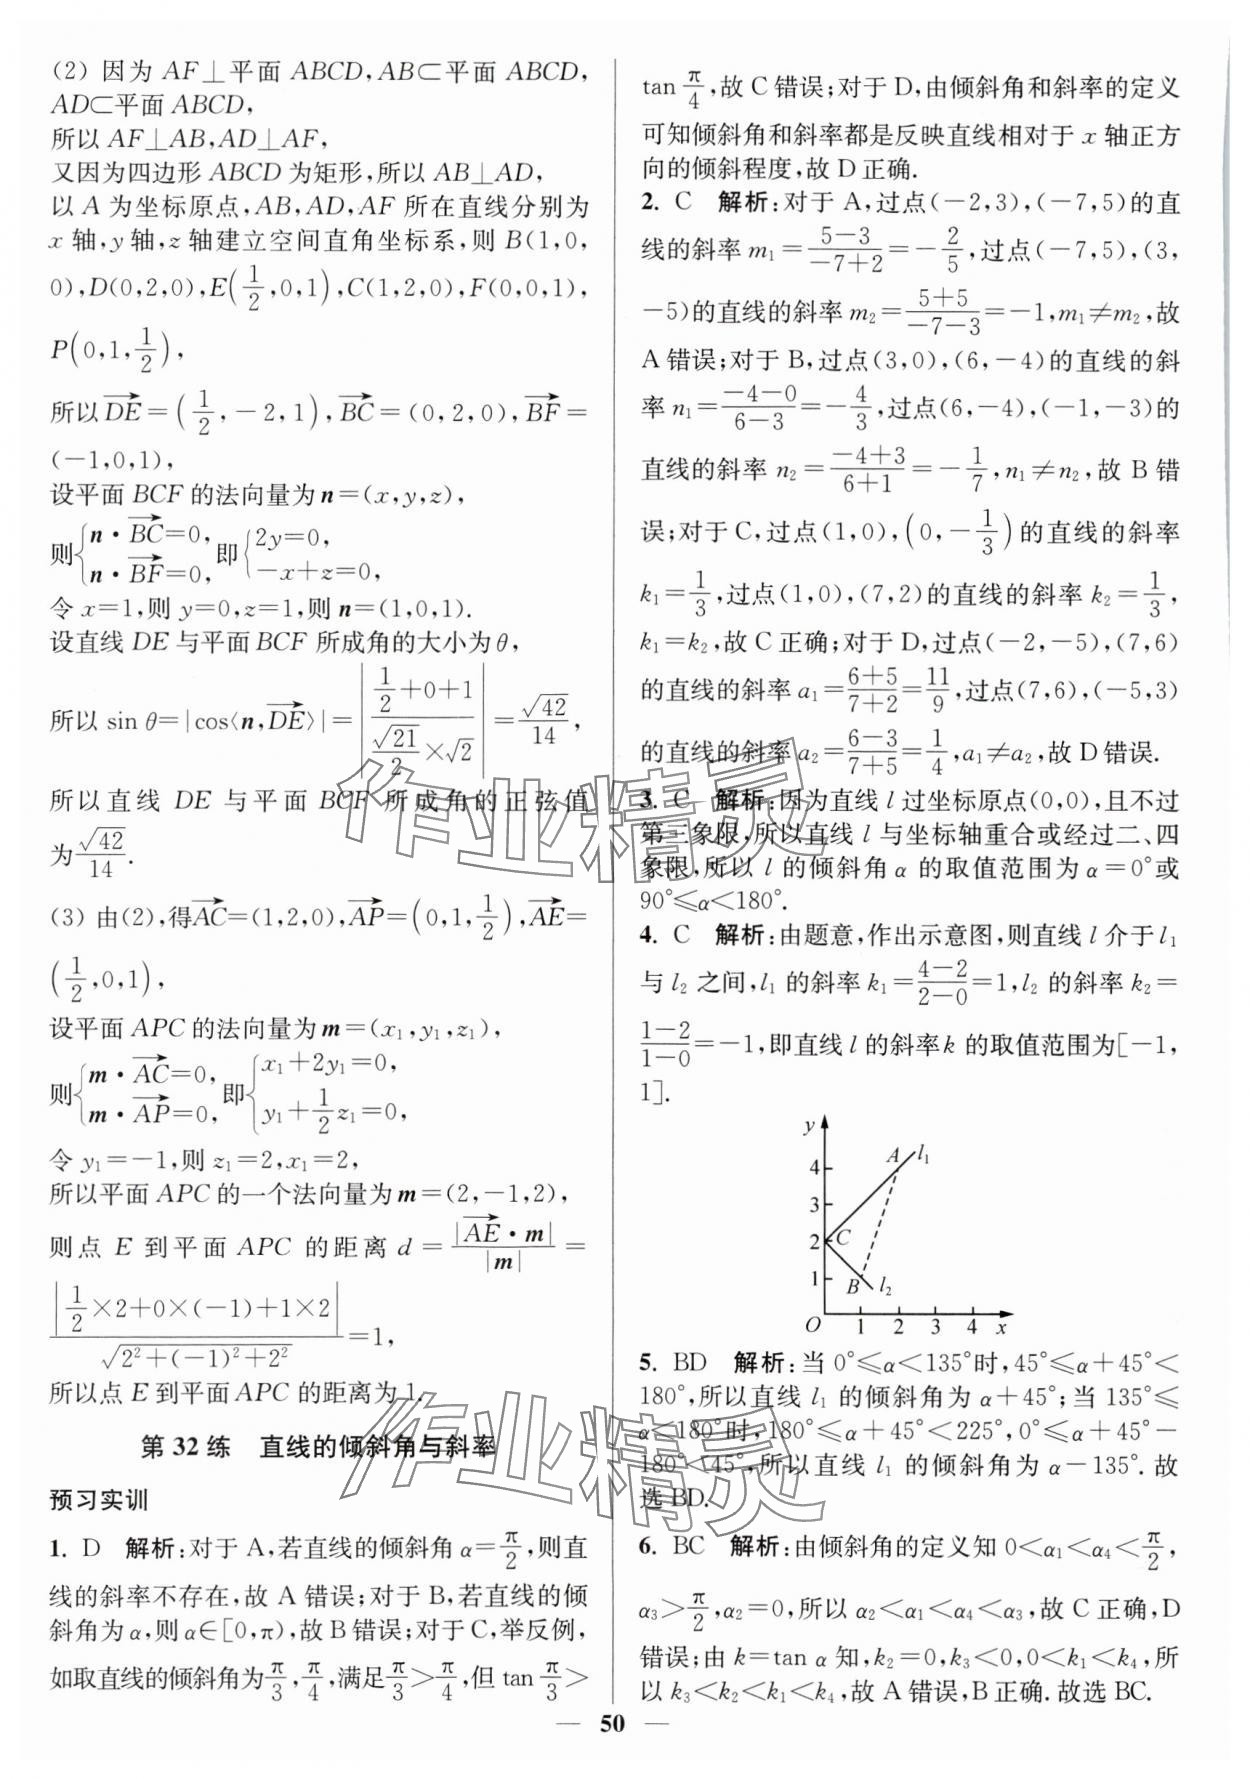 (2) 因为 AF⊥平面 ABCD,AB⊂平面 ABCD,
AD⊂平面 ABCD,
所以 AF⊥AB,AD⊥AF,
又因为四边形 ABCD 为矩形,所以 AB⊥AD,
以 A 为坐标原点,AB,AD,AF 所在直线分别为
x 轴,y 轴,z 轴建立空间直角坐标系,则 B(1,0,
0),D(0,2,0),E(1/2,0,1),C(1,2,0),F(0,0,1),
P(0,1,1/2),
所以$\overrightarrow{DE}$=(1/2,-2,1),$\overrightarrow{BC}$=(0,2,0),$\overrightarrow{BF}$=
(-1,0,1),
设平面 BCF 的法向量为 n=(x,y,z),
则{n·$\overrightarrow{BC}$=0, n·$\overrightarrow{BF}$=0, 即{2y=0, -x+z=0,
令 x=1,则 y=0,z=1,则 n=(1,0,1).
设直线 DE 与平面 BCF 所成角的大小为 θ,
所以 sin θ=|cos⟨n,$\overrightarrow{DE}$⟩|=$\left|\frac{\frac{1}{2}+0+1}{\frac{\sqrt{21}}{2}×\sqrt{2}}\right|$=$\frac{\sqrt{42}}{14}$,
所以直线 DE 与平面 BCF 所成角的正弦值
为$\frac{\sqrt{42}}{14}$.
(3) 由(2),得$\overrightarrow{AC}$=(1,2,0),$\overrightarrow{AP}$=(0,1,1/2),$\overrightarrow{AE}$=
(1/2,0,1),
设平面 APC 的法向量为 m=(x₁,y₁,z₁),
则{m·$\overrightarrow{AC}$=0, m·$\overrightarrow{AP}$=0, 即{x₁+2y₁=0, y₁+1/2 z₁=0,
令 y₁=-1,则 z₁=2,x₁=2,
所以平面 APC 的一个法向量为 m=(2,-1,2),
则点 E 到平面 APC 的距离 d=$\frac{|\overrightarrow{AE}·m|}{|m|}$=
$\frac{\left|\frac{1}{2}×2+0×(-1)+1×2\right|}{\sqrt{2^2+(-1)^2+2^2}}$=1,
所以点 E 到平面 APC 的距离为 1.
第 32 练 直线的倾斜角与斜率
预习实训
1. D 解析:对于 A,若直线的倾斜角 α=π/2,则直
线的斜率不存在,故 A 错误;对于 B,若直线的倾
斜角为 α,则 α∈[0,π),故 B 错误;对于 C,举反例,
如取直线的倾斜角为π/3,π/4,满足π/3>π/4,但 tan π/3>
tan π/4,故 C 错误;对于 D,由倾斜角和斜率的定义
可知倾斜角和斜率都是反映直线相对于 x 轴正方
向的倾斜程度,故 D 正确.
2. C 解析:对于 A,过点(-2,3),(-7,5)的直
线的斜率 m₁=$\frac{5-3}{-7+2}$=-2/5,过点(-7,5),(3,
-5)的直线的斜率 m₂=$\frac{5+5}{-7-3}$=-1,m₁≠m₂,故
A 错误;对于 B,过点(3,0),(6,-4)的直线的斜
率 n₁=$\frac{-4-0}{6-3}$=-4/3,过点(6,-4),(-1,-3)的
直线的斜率 n₂=$\frac{-4+3}{6+1}$=-1/7,n₁≠n₂,故 B 错
误;对于 C,过点(1,0),(0,-1/3)的直线的斜率
k₁=1/3,过点(1,0),(7,2)的直线的斜率 k₂=1/3,
k₁=k₂,故 C 正确;对于 D,过点(-2,-5),(7,6)
的直线的斜率 a₁=$\frac{6+5}{7+2}$=11/9,过点(7,6),(-5,3)
的直线的斜率 a₂=$\frac{6-3}{7+5}$=1/4,a₁≠a₂,故 D 错误.
3. C 解析:因为直线 l 过坐标原点(0,0),且不过
第三象限,所以直线 l 与坐标轴重合或经过二、四
象限,所以 l 的倾斜角 α 的取值范围为 α=0°或
90°≤α<180°.
4. C 解析:由题意,作出示意图,则直线 l 介于 l₁
与 l₂ 之间,l₁ 的斜率 k₁=$\frac{4-2}{2-0}$=1,l₂ 的斜率 k₂=
$\frac{1-2}{1-0}$=-1,即直线 l 的斜率 k 的取值范围为[-1,
1].
y
A l₁
4
3
2 C
1 B l₂
O 1 2 3 4 x
5. BD 解析:当 0°≤α<135°时,45°≤α+45°<
180°,所以直线 l₁ 的倾斜角为 α+45°;当 135°≤
α<180°时,180°≤α+45°<225°,0°≤α+45°-
180°<45°,所以直线 l₁ 的倾斜角为 α-135°. 故
选 BD.
6. BC 解析:由倾斜角的定义知 0<α₁<α₄<π/2,
α₃>π/2,α₂=0,所以 α₂<α₁<α₄<α₃,故 C 正确,D
错误;由 k=tan α 知,k₂=0,k₃<0,0<k₁<k₄,所
以 k₃<k₂<k₁<k₄,故 A 错误,B 正确. 故选 BC.
— 50 —
作业精灵
作业精灵